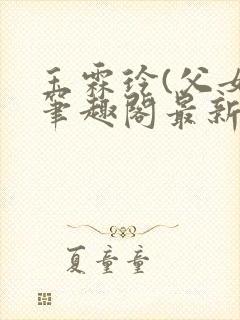 玉霖铃(父女
笔趣阁最新
夏童童